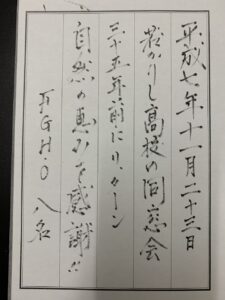 平成七年十一月二十三日
若かりし高校の同窓会
三十五年前にリターン
自然の恵みを感謝!!
GH.O 八名